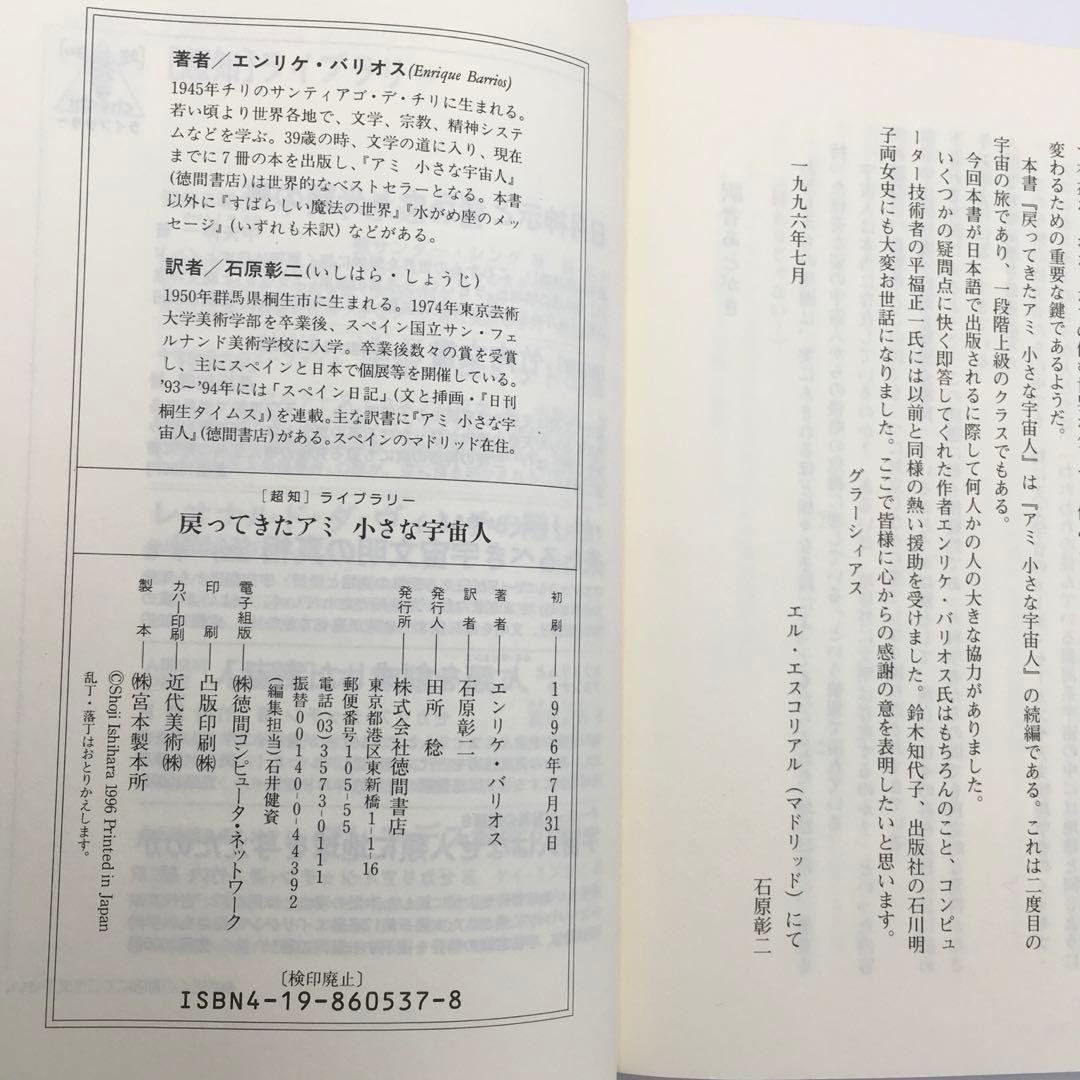 変わるための重要な鍵であるようだ。
本書『戻ってきたアミ 小さな宇宙人』は『アミ 小さな宇宙人』の続編である。これは二度目の
宇宙の旅であり、一段階上級のクラスでもある。
今回本書が日本語で出版されるに際して何人かの人の大きな協力がありました。
いくつかの疑問点に快く即答してくれた作者エンリケ・バリオス氏はもちろんのこと、コンピュ
ーター技術者の平福正一氏には以前と同様の熱い援助を受けました。鈴木知代子、出版社の石川明
子両女史にも大変お世話になりました。ここで皆様に心からの感謝の意を表明したいと思います。
グラーシィアス
一九九六年七月
エル・エスコリアル（マドリッド）にて
石原彰二
著者／エンリケ・バリオス(Enrique Barrios)
1945年チリのサンティアゴ・デ・チリに生まれる。
若い頃より世界各地で、文学、宗教、精神システ
ムなどを学ぶ。39歳の時、文学の道に入り、現在
までに7冊の本を出版し、『アミ 小さな宇宙人』
(徳間書店)は世界的なベストセラーとなる。本書
以外に『すばらしい魔法の世界』『水がめ座のメッ
セージ』(いずれも未訳) などがある。
訳者／石原彰二(いしはら・しょうじ)
1950年群馬県桐生市に生まれる。1974年東京芸術
大学美術学部を卒業後、スペイン国立サン・フェ
ルナンド美術学校に入学。卒業後数々の賞を受賞
し、主にスペインと日本で個展等を開催している。
'93〜'94年には「スペイン日記」(文と挿画・『日刊
桐生タイムス』)を連載。主な訳書に『アミ 小さな宇
宙人』(徳間書店)がある。スペインのマドリッド在住。
［超知］ライブラリー
戻ってきたアミ 小さな宇宙人
初刷——1996年7月31日
著者——エンリケ・バリオス
訳者——石原彰二
発行人——田所 稔
発行所——株式会社徳間書店
東京都港区東新橋1-1-16
郵便番号105-55
電話(03)3573-0111
振替00140-0-44392
(編集担当)石井健資
電子組版——㈱徳間コンピュータ・ネットワーク
印刷——凸版印刷㈱
カバー印刷——近代美術㈱
製本——㈱宮本製本所
©Shoji Ishihara 1996 Printed in Japan
乱丁・落丁はおとりかえします。
〔検印廃止〕
ISBN4-19-860537-8